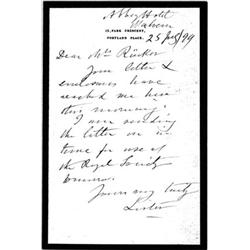 Abbey Hotel
Malvern
12, PARK CRESCENT,
PORTLAND PLACE.
25 /99
Dear Mrs Rücker
Your letter &
enclosures have
reached me here
this morning.
I am sending
the letter on in
time for use at
the Royal Society
Yours very truly
Lister